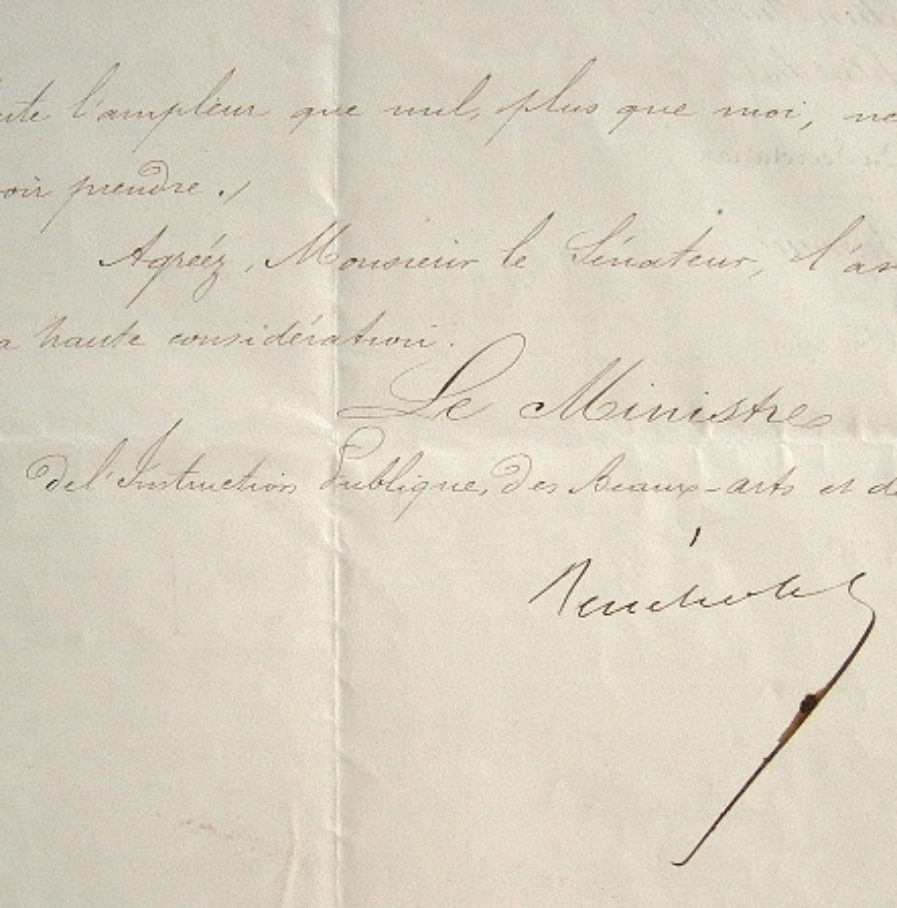 ute l'ampleur que nul, plus que moi, ne
oir prendre.
Agréez, Monsieur le Sénateur, l'as
a haute considération.
Le Ministre
de l'Instruction Publique, des Beaux-arts et d